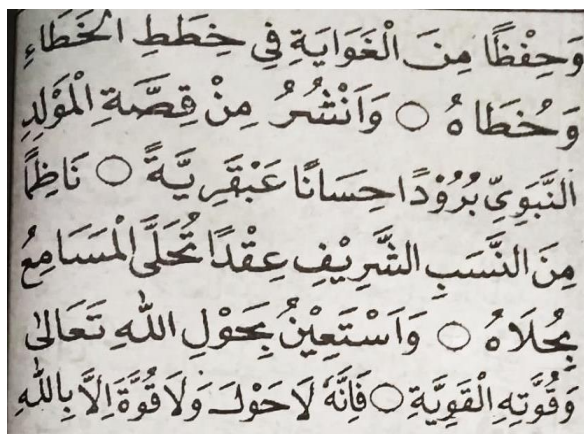 وَحِفْظًا مِنَ الْغَوَايَةِ فِي خِطَطِ الْخَطَاءِ
وَخُطَاهُ ○ وَاَنْشُرُ مِنْ قِصَّةِ الْمَوْلِدِ
النَّبَوِيِّ بُرُوْدًا حِسَانًا عَبْقَرِيَّةً ○ نَاظِمًا
مِنَ النَّسَبِ الشَّرِيْفِ عِقْدًا تُحَلَّى الْمَسَامِعُ
بِحُلَاهُ ○ وَاَسْتَعِيْنُ بِحَوْلِ اللّٰهِ تَعَالٰى
وَقُوَّتِهِ الْقَوِيَّةِ ○ فَاِنَّهٗ لَاحَوْلَ وَلَا قُوَّةَ اِلَّا بِاللّٰهِ